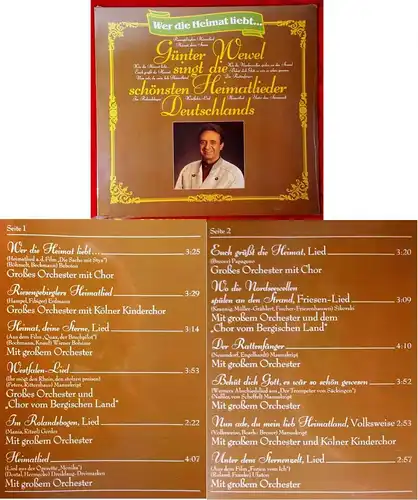 Wer die Heimat liebt...
Günter Wewel
singt die
schönsten Heimatlieder
Deutschlands
Seite 1
Wer die Heimat liebt... 3:25
(Heimatlied a.d. Film „Die Sache mit Styx")
Großes Orchester mit Chor
Riesengebirglers Heimatlied 3:29
(Hampel, Fdeger) Erdmann
Großes Orchester mit Kölner Kinderchor
Heimat, deine Sterne, Lied 3:14
(Aus dem Film „Quax, der Bruchpilot")
(Bochmann, Knauf) Werner Bohême
Mit großem Orchester
Westfalen-Lied 3:53
(Ihr mögt den Rhein, den stolzen preisen)
(Peters, Rittershaus) Manuskript
Großes Orchester und
„Chor vom Bergischen Land"
Im Rolandsbogen, Lied 2:22
(Hania, Ritter) Gerdes
Mit großem Orchester
Heimatlied 4:07
(Lied aus der Operette „Monika")
(Dostal, Hermecke) Dreiklang-Dreimasken
Mit großem Orchester
Seite 2
Euch grüßt die Heimat, Lied 3:20
Großes Orchester mit Chor
Wo die Nordseewellen
spülen an den Strand, Friesen-Lied 3:09
(Krannig, Müller-Grählert, Fischer-Friesenhausen) Sikorski
Mit großem Orchester und dem
„Chor vom Bergischen Land"
Der Rattenfänger 4:10
(Neuendorf, Engelhardt) Manuskript
Mit großem Orchester
Behüt dich Gott, es wär so schön gewesen 3:52
(Werners Abschiedslied aus „Der Trompeter von Säckingen")
(Neßler, von Scheffel) Manuskript
Mit großem Orchester
Nun ade, du mein lieb Heimatland, Volksweise 2:53
Mit großem Orchester und Kölner Kinderchor
Unter dem Sternenzelt, Lied 2:57
(Aus dem Film „Ferien vom Ich")
Mit großem Orchester